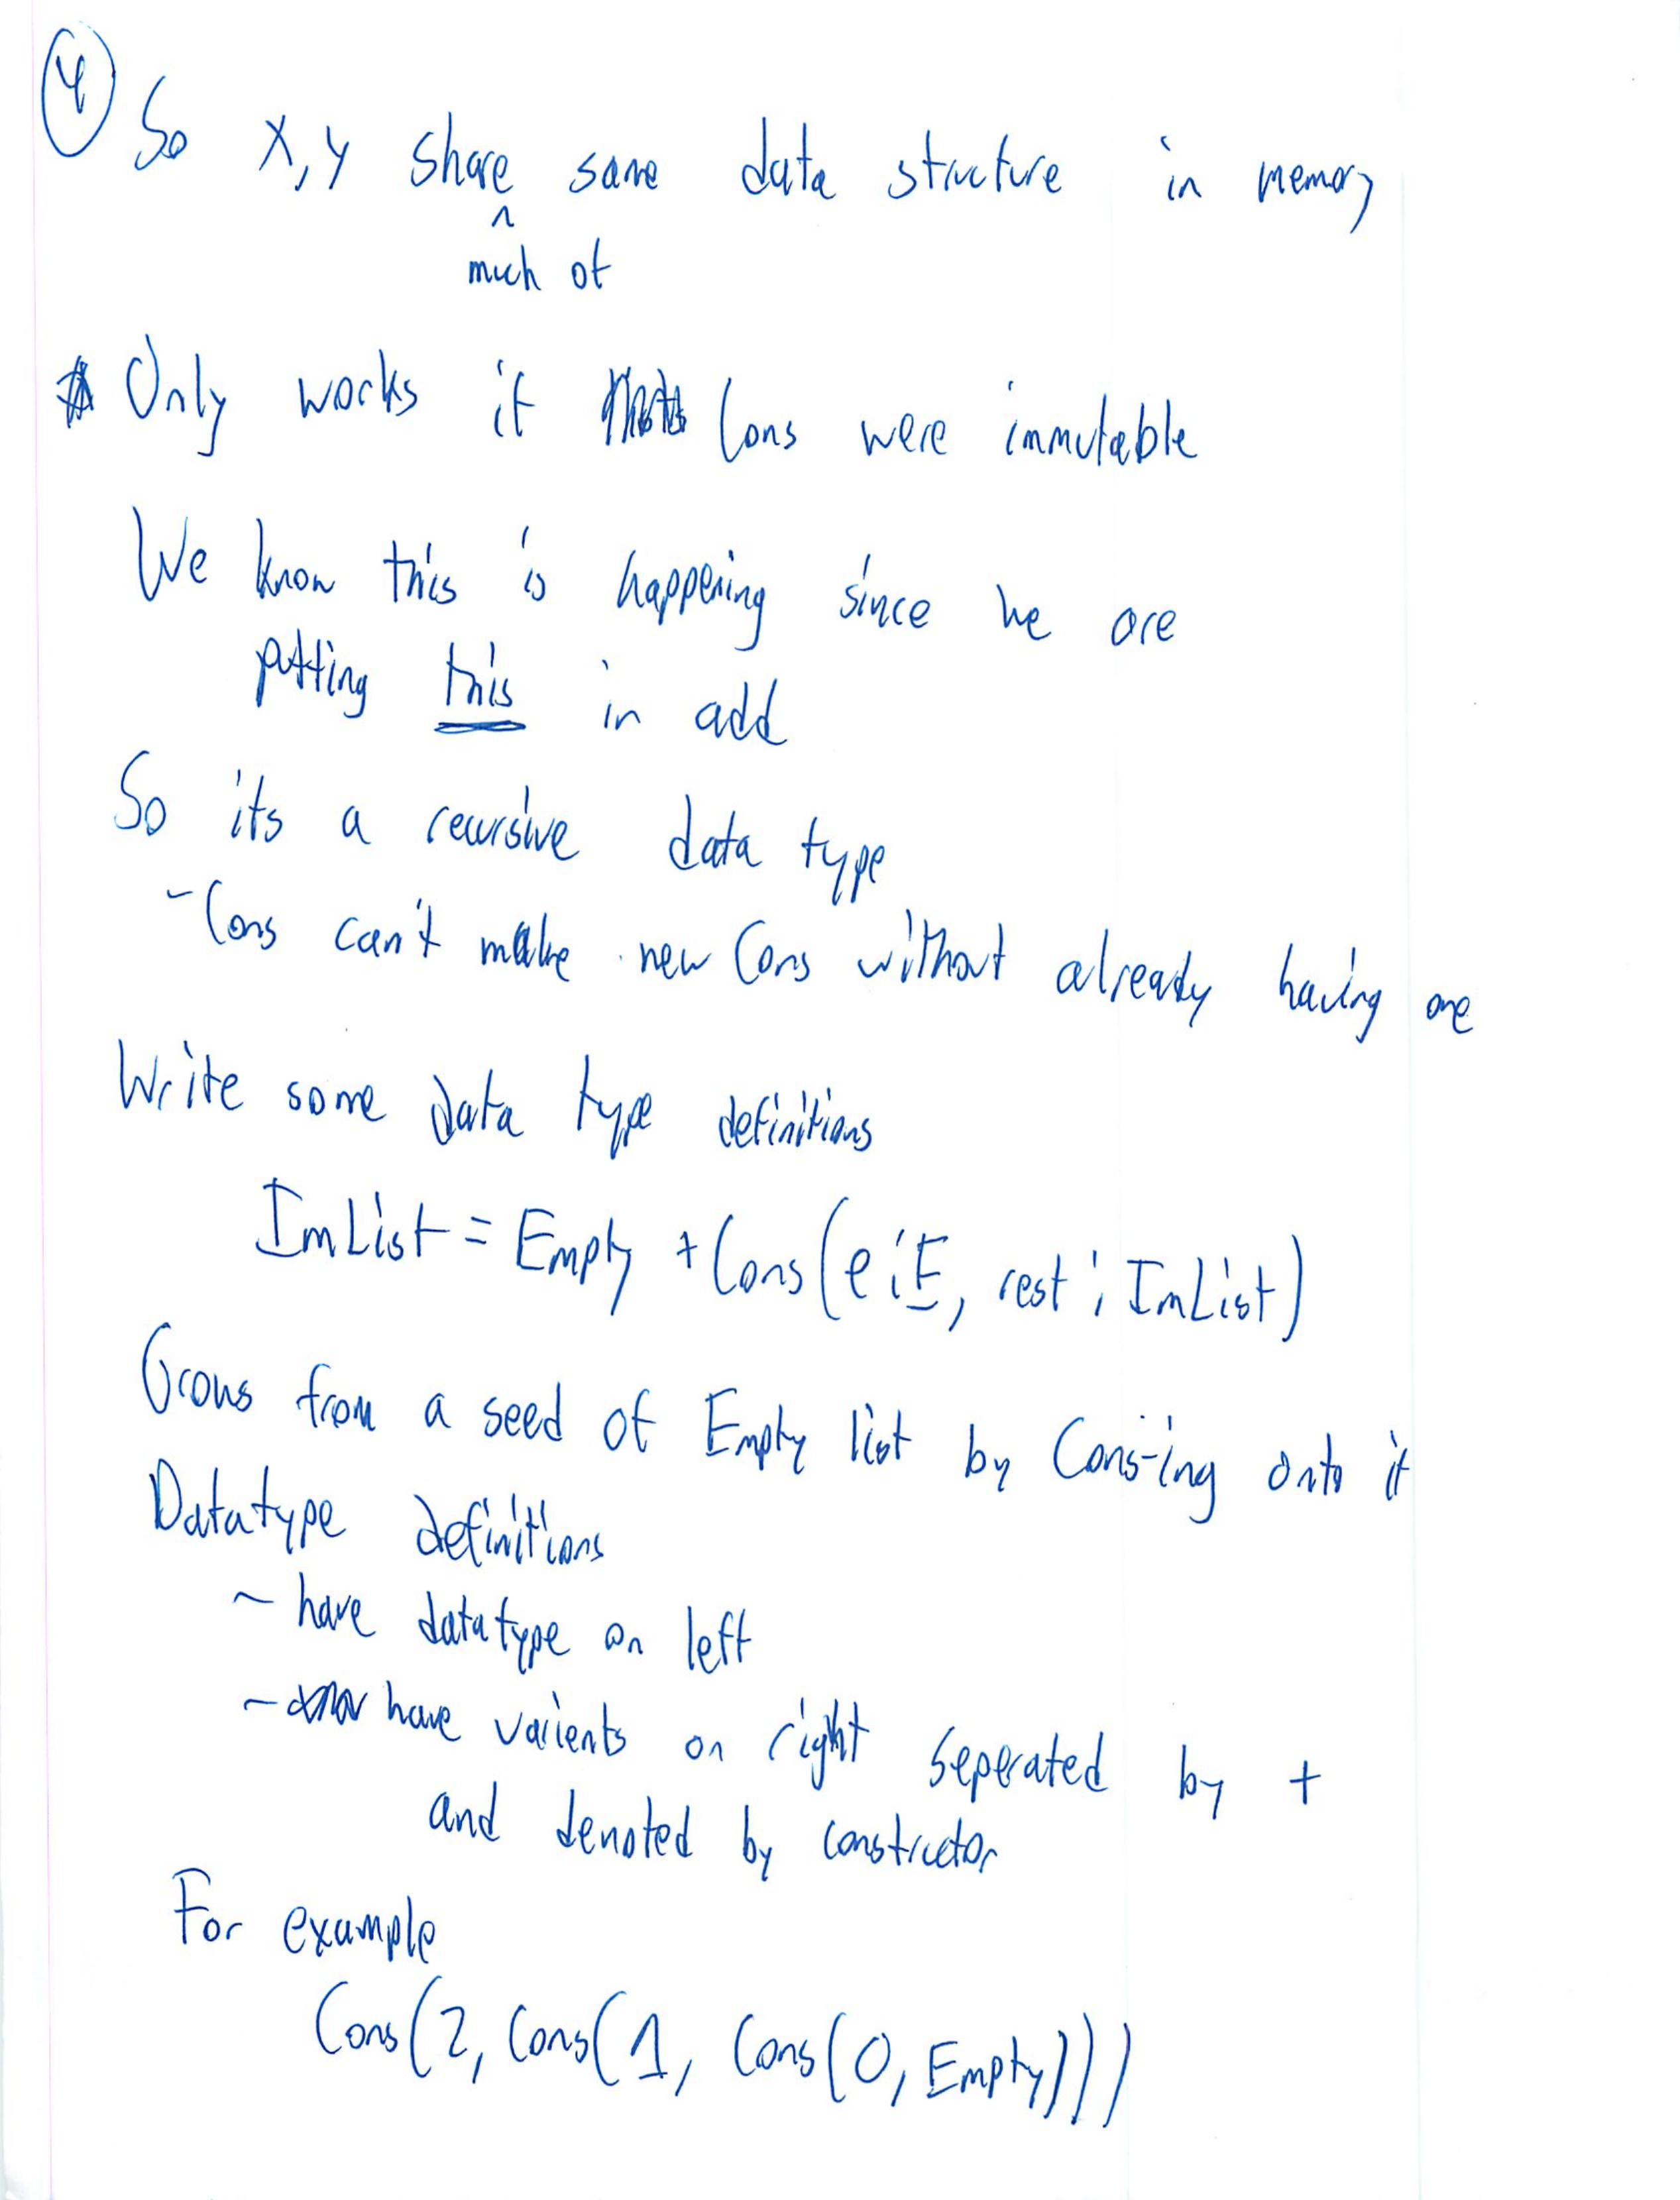 4
So x,y share same data structure in memory
^
much of
* Only works if Cons were immutable
We know this is happening since we are
putting this in add
So its a recursive data type
- Cons can't make new Cons without already having one
Write some data type definitions
ImList = Empty + Cons(e:E, rest: ImList)
Grows from a seed of Empty list by Cons-ing onto it
Datatype definitions
- have datatype on left
- have varients on right seperated by +
and denoted by constructor
For example
Cons(2, Cons(1, Cons(0, Empty)))